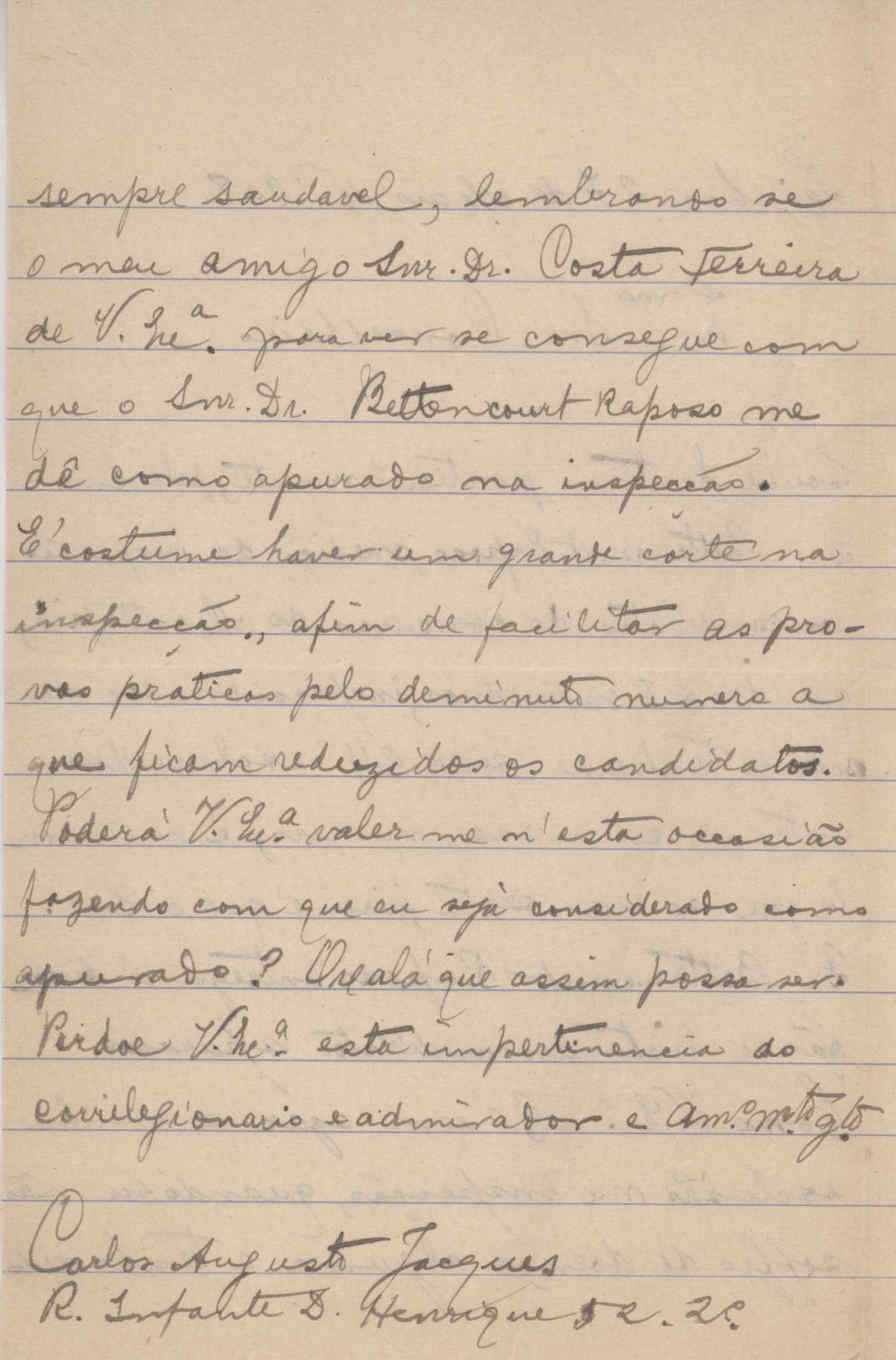 sempre saudavel, lembrando se
o meu amigo Snr. Dr. Costa Ferreira
de V. Exª. para ver se consegue com
que o Snr. Dr. Bettencourt Raposo me
dê como apurado na inspecção.
E' costume haver um grande córte na
inspecção., afim de facilitar as pro-
vas práticas pelo deminuto numero a
que ficam reduzidos os candidatos.
Poderá V. Exª. valer me n'esta occasião
fazendo com que eu seja considerado como
apurado? Oxalá que assim possa ser.
Perdoe V. Exª. esta impertinencia do
correlegionario e admirador e Amº. mtº. gtº
Carlos Augusto Jacques
R. Infante D. Henrique 52. 2º.